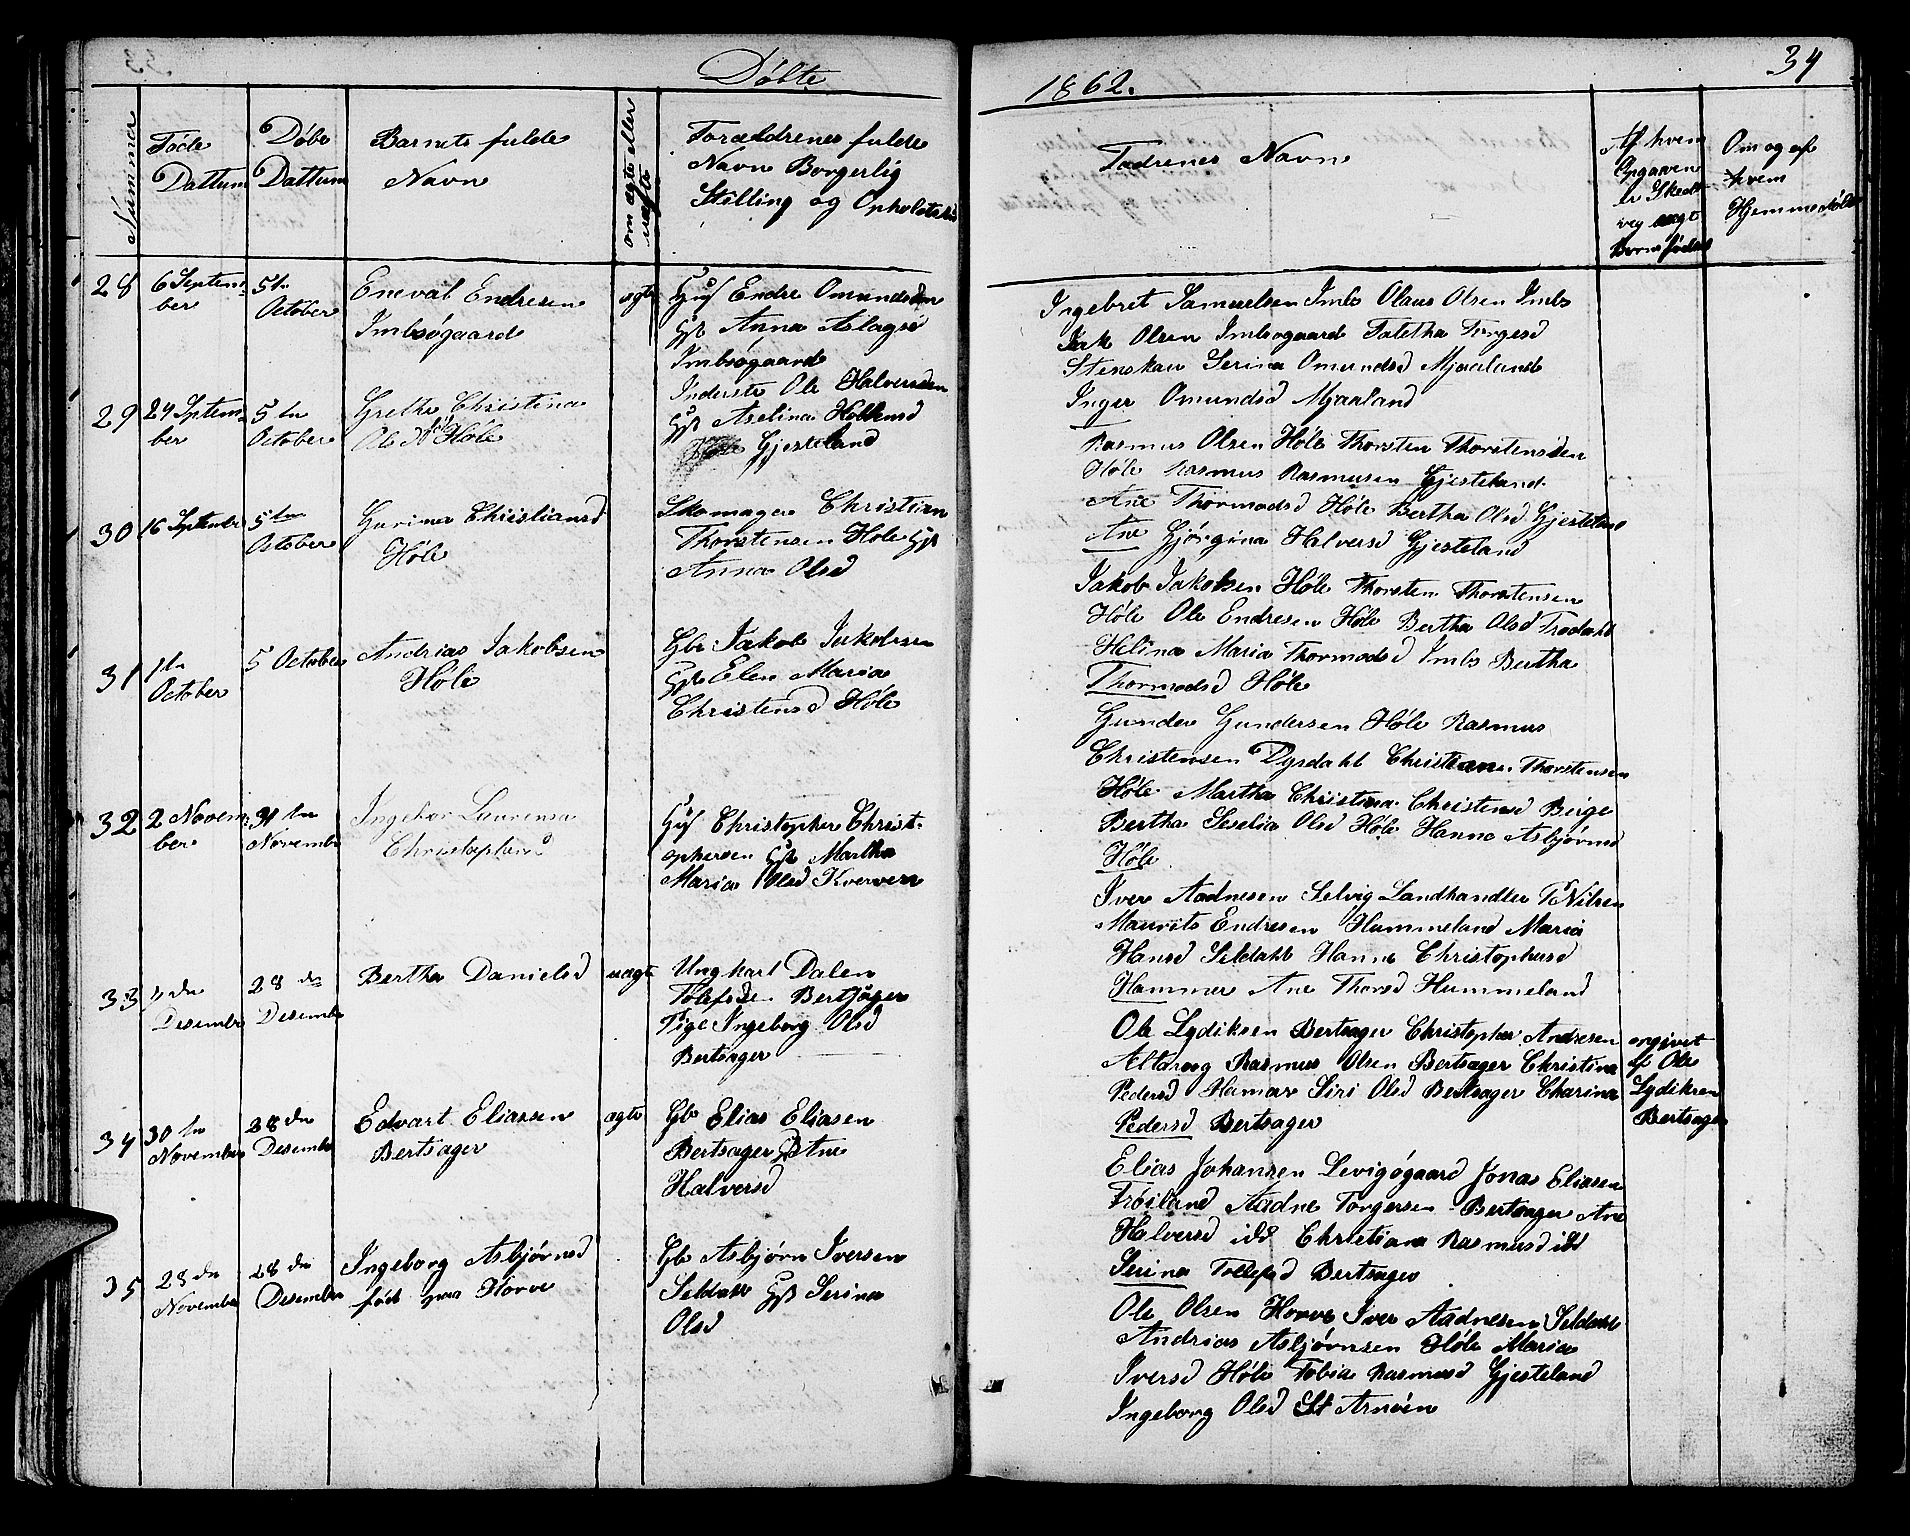 Döbte
1862.
34
Nummer
Föde Dattum
Döbe Dattum
Barnets fulde Navn
om ægte eller uægte
Forældrenes fulde Navn Borgerlig Stilling og Opholdsted
Fadrenes Navn
Af hvem Opgaven er Skedt veg uægt Borns fødsel
Om og af hvem Hjemmedøbt
28
6 September
5te October
Eneval Endresen
Imbsøgaard
ægte
Huf Endre Omundsen
Hst Anna Aslagsd
Imbsøgaard
Ingebret Samuelsen Imbs Olaus Olsen Imbs
Erik Olsen Imbsogaard Taletha Torgesd
Stenskau Serina Omundsd Mjaaland
Inger Omundsd Mjaaland
29
24 September
5te October
Grethe Christina
Olsd Høle
Inderste Ole Halversen
Hst Aselina
Gjesteland
Rasmus Olsen Høle Thorsten Thorstensen
Høle Rasmus Rasmusen Gjesteland
Ane Thormodsd Høle Bertha Olsd Gjesteland
Ane Gjørgina Halversd Gjesteland
30
16 September
5te October
Gurina Christiansd
Høle
Skomager Christian
Thorstensen Høle Hst
Anna Olsd
Jakob Jakobsen Høle Thorsten Thorstensen
Høle Ole Endresen Høle Bertha Olsd Trodahl
Helina Maria Thormodsd Imbs Bertha
Thormodsd Høle
31
1te October
5 October
Andrias Jakobsen
Høle
Gbr Jakob Jakobsen
Hst Elen Maria
Christensd Høle
Gunder Gundersen Høle Rasmus
Christensen Dysdahl Christian Thorstensen
Høle Martha Christina Christensd Beige
Bertha Seselia Olsd Høle Hanna Asbjørnsd
Høle
32
2 November
30te November
Ingebor Laurensa
Christophersd
Huf Christopher Christ-
ophersen Hst Martha
Maria Olsd Kverven
Iver Aadnesen Selvig Landhandler T Nilsen
Maurits Endresen Hummeland Maria
Hansd Seldahl Hanne Christophersd
Hammer Ane Thorsd Hummeland
33
4de Desember
28de Desember
Bertha Danielsd
uægte
Ungkarl Dalen
Tolefsen Bertsager
Pige Ingeborg Olsd
Bertsager
Ole Lydiksen Bertsager Christopher Andresen
Altaroug Rasmus Olsen Bertsager Christina
Pedersd Hamar Siri Olsd Bertsager Charina
Pedersd Bertsager
angivet
af Ole
Lydiksen
Bertsager
34
30te November
28de Desember
Edvart Eliassen
Bertsager
ægte
Gbr Elias Eliasen
Bertsager Hst Ane
Halversd
Elias Johansen Levigøgaard Jonas Eliasen
Frøiland Aadne Torgersen Bertsager Ane
Halversd ibd Christiana Rasmusd ibd
Serina Tollefsd Bertsager
35
28de November
28de Desember
Ingeborg Asbjørnsd
født paa Horve
Gbr Asbjørn Iversen
Seldahl Hst Serina
Olsd
Ole Olsen Horve Iver Aadnesen Seldahl
Andrias Asbjørnsen Høle Maria
Iversd Høle Tobia Rasmusd Gjesteland
Ingeborg Olsd St Arnøen